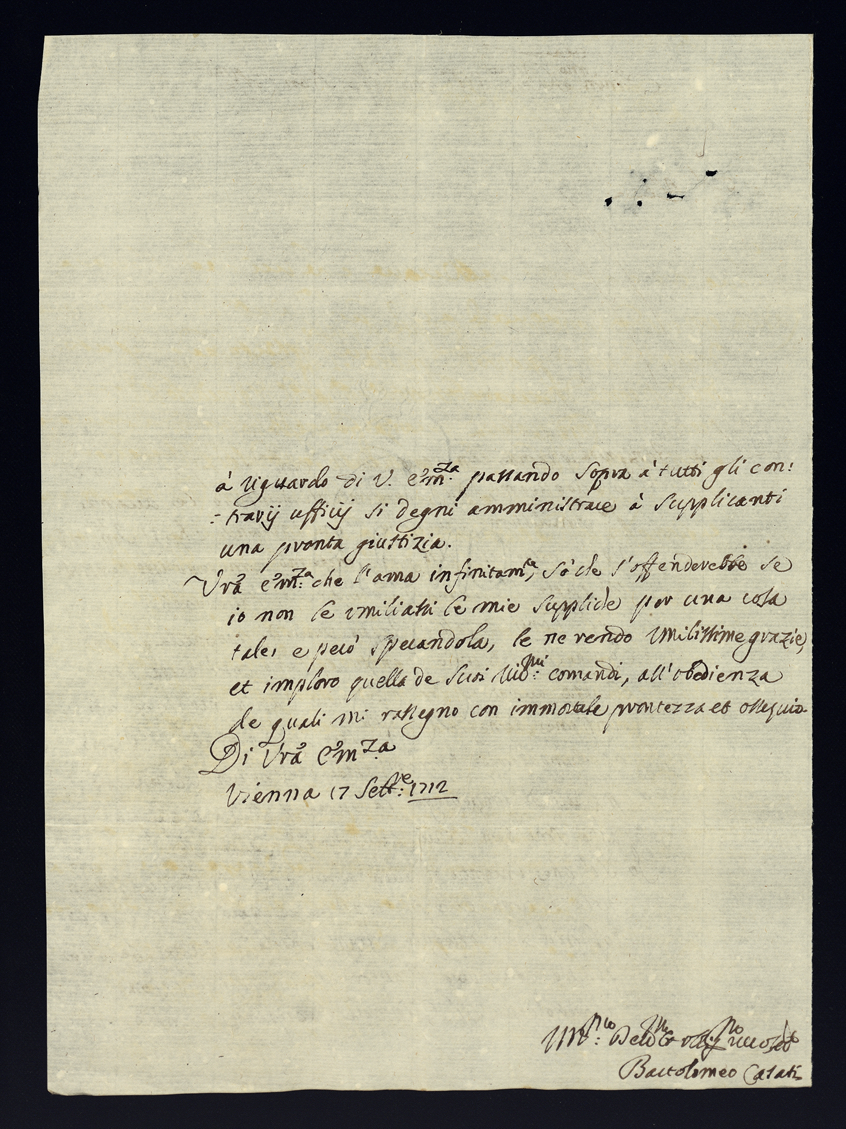 à riguardo di V. Em.za passando sopra à tutti gli con:
:trarij ufficij si degni amministrare à supplicanti
una pronta giustizia.
Vrã Em.za che l'ama infinitam.te, sà che s'offenderebbe se
io non le umiliassi le mie suppliche per una cosa
tale, e però sperandola, le ne rendo umilissime grazie,
et imploro quella de suoi comandi, all'obedienza
de quali mi rassegno con immortale prontezza et ossequio.
Di Vrã Em.za
Vienna 17 Sett.re: 1712
Bartolomeo Casati